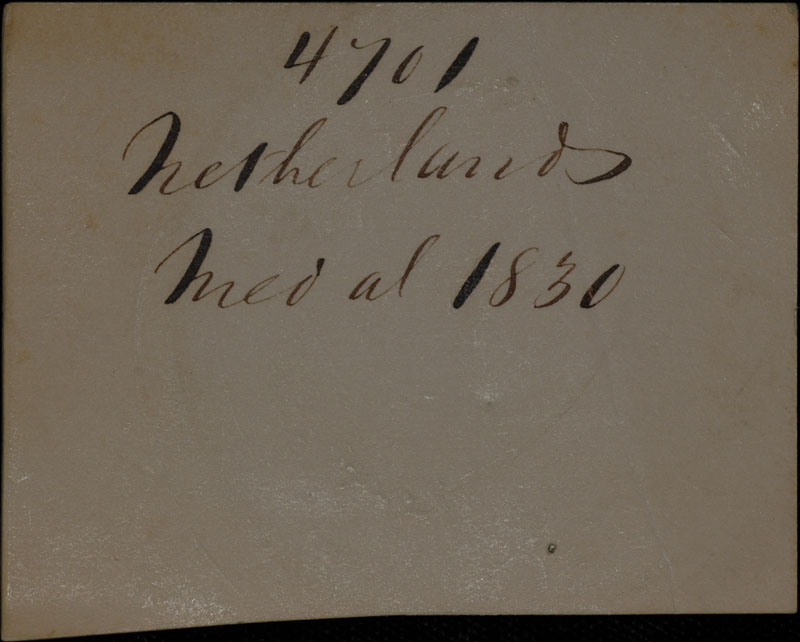 4701
Netherlands
Medal 1830